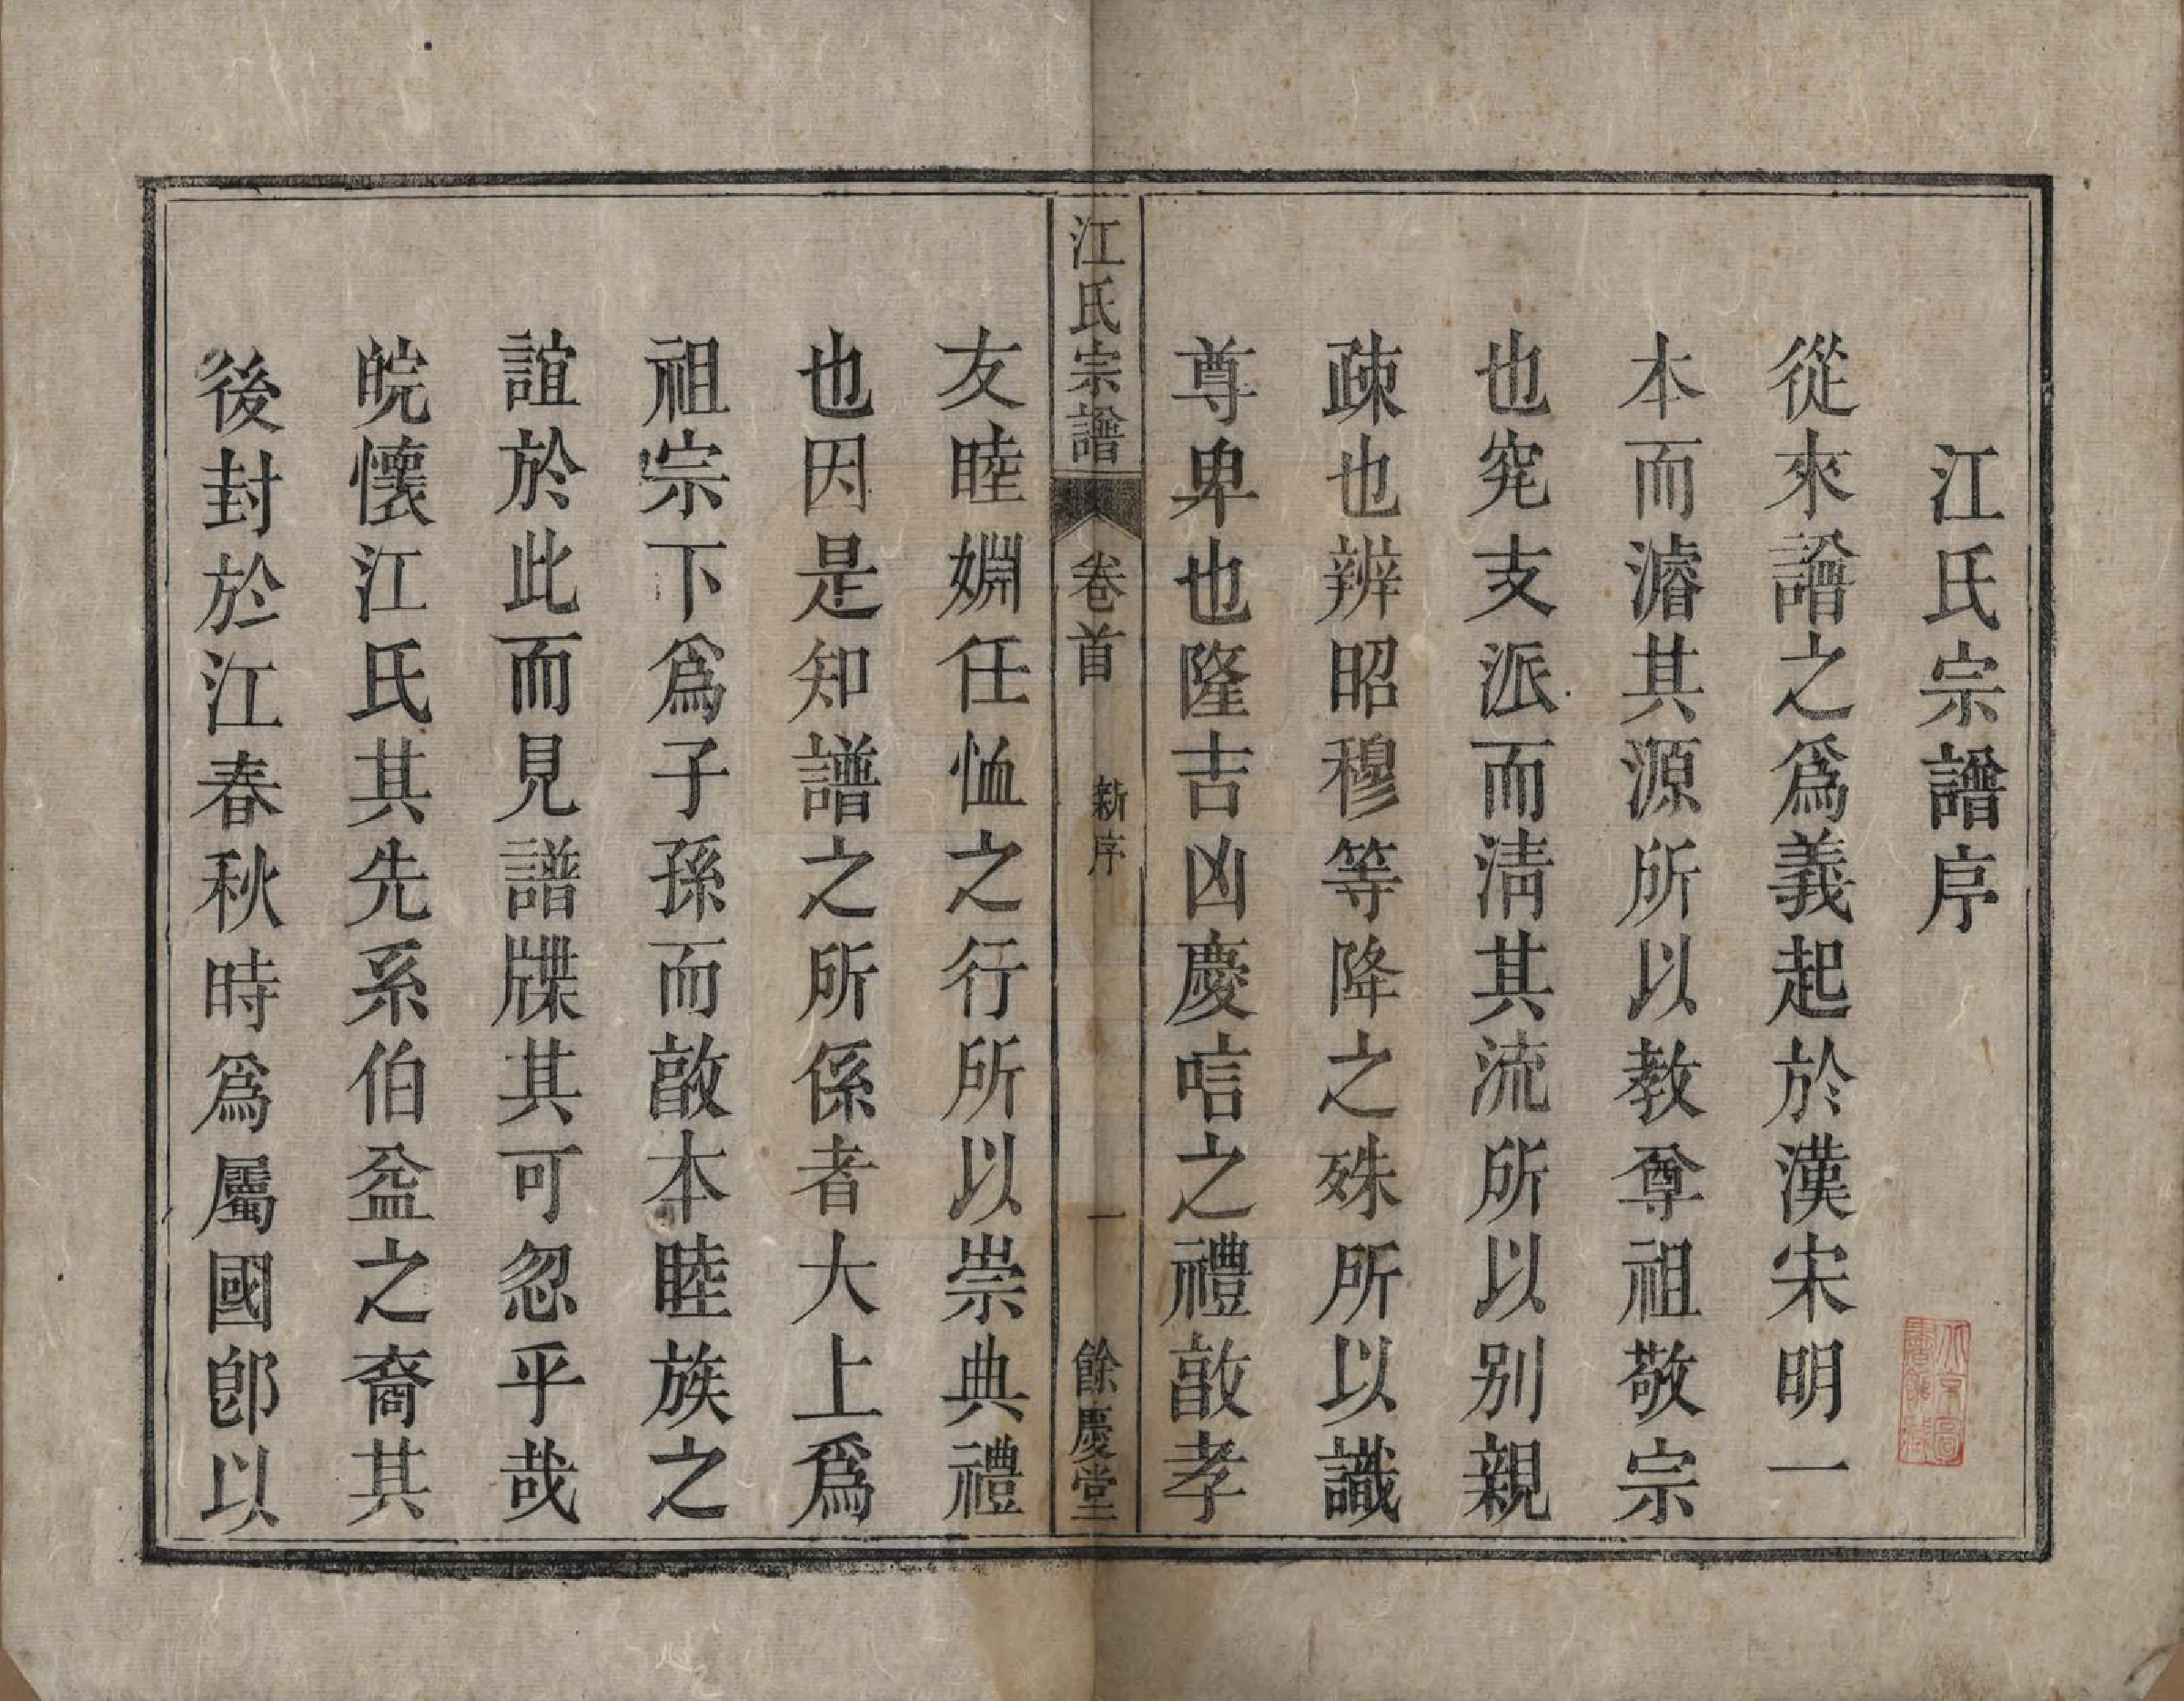 江氏宗譜序
從來譜之爲義起於漢宋明一
本而濬其源所以教尊祖敬宗
也究支派而淸其流所以别親
疎也辨昭穆等降之殊所以識
尊卑也隆吉凶慶唁之禮敦孝
江氏宗譜 卷首 新序 一 餘慶堂
友睦婣任恤之行所以崇典禮
也因是知譜之所係者大上爲
祖宗下爲子孫而敦本睦族之
誼於此而見譜牒其可忽乎哉
皖懷江氏其先系伯益之裔其
後封於江春秋時爲屬國卽以